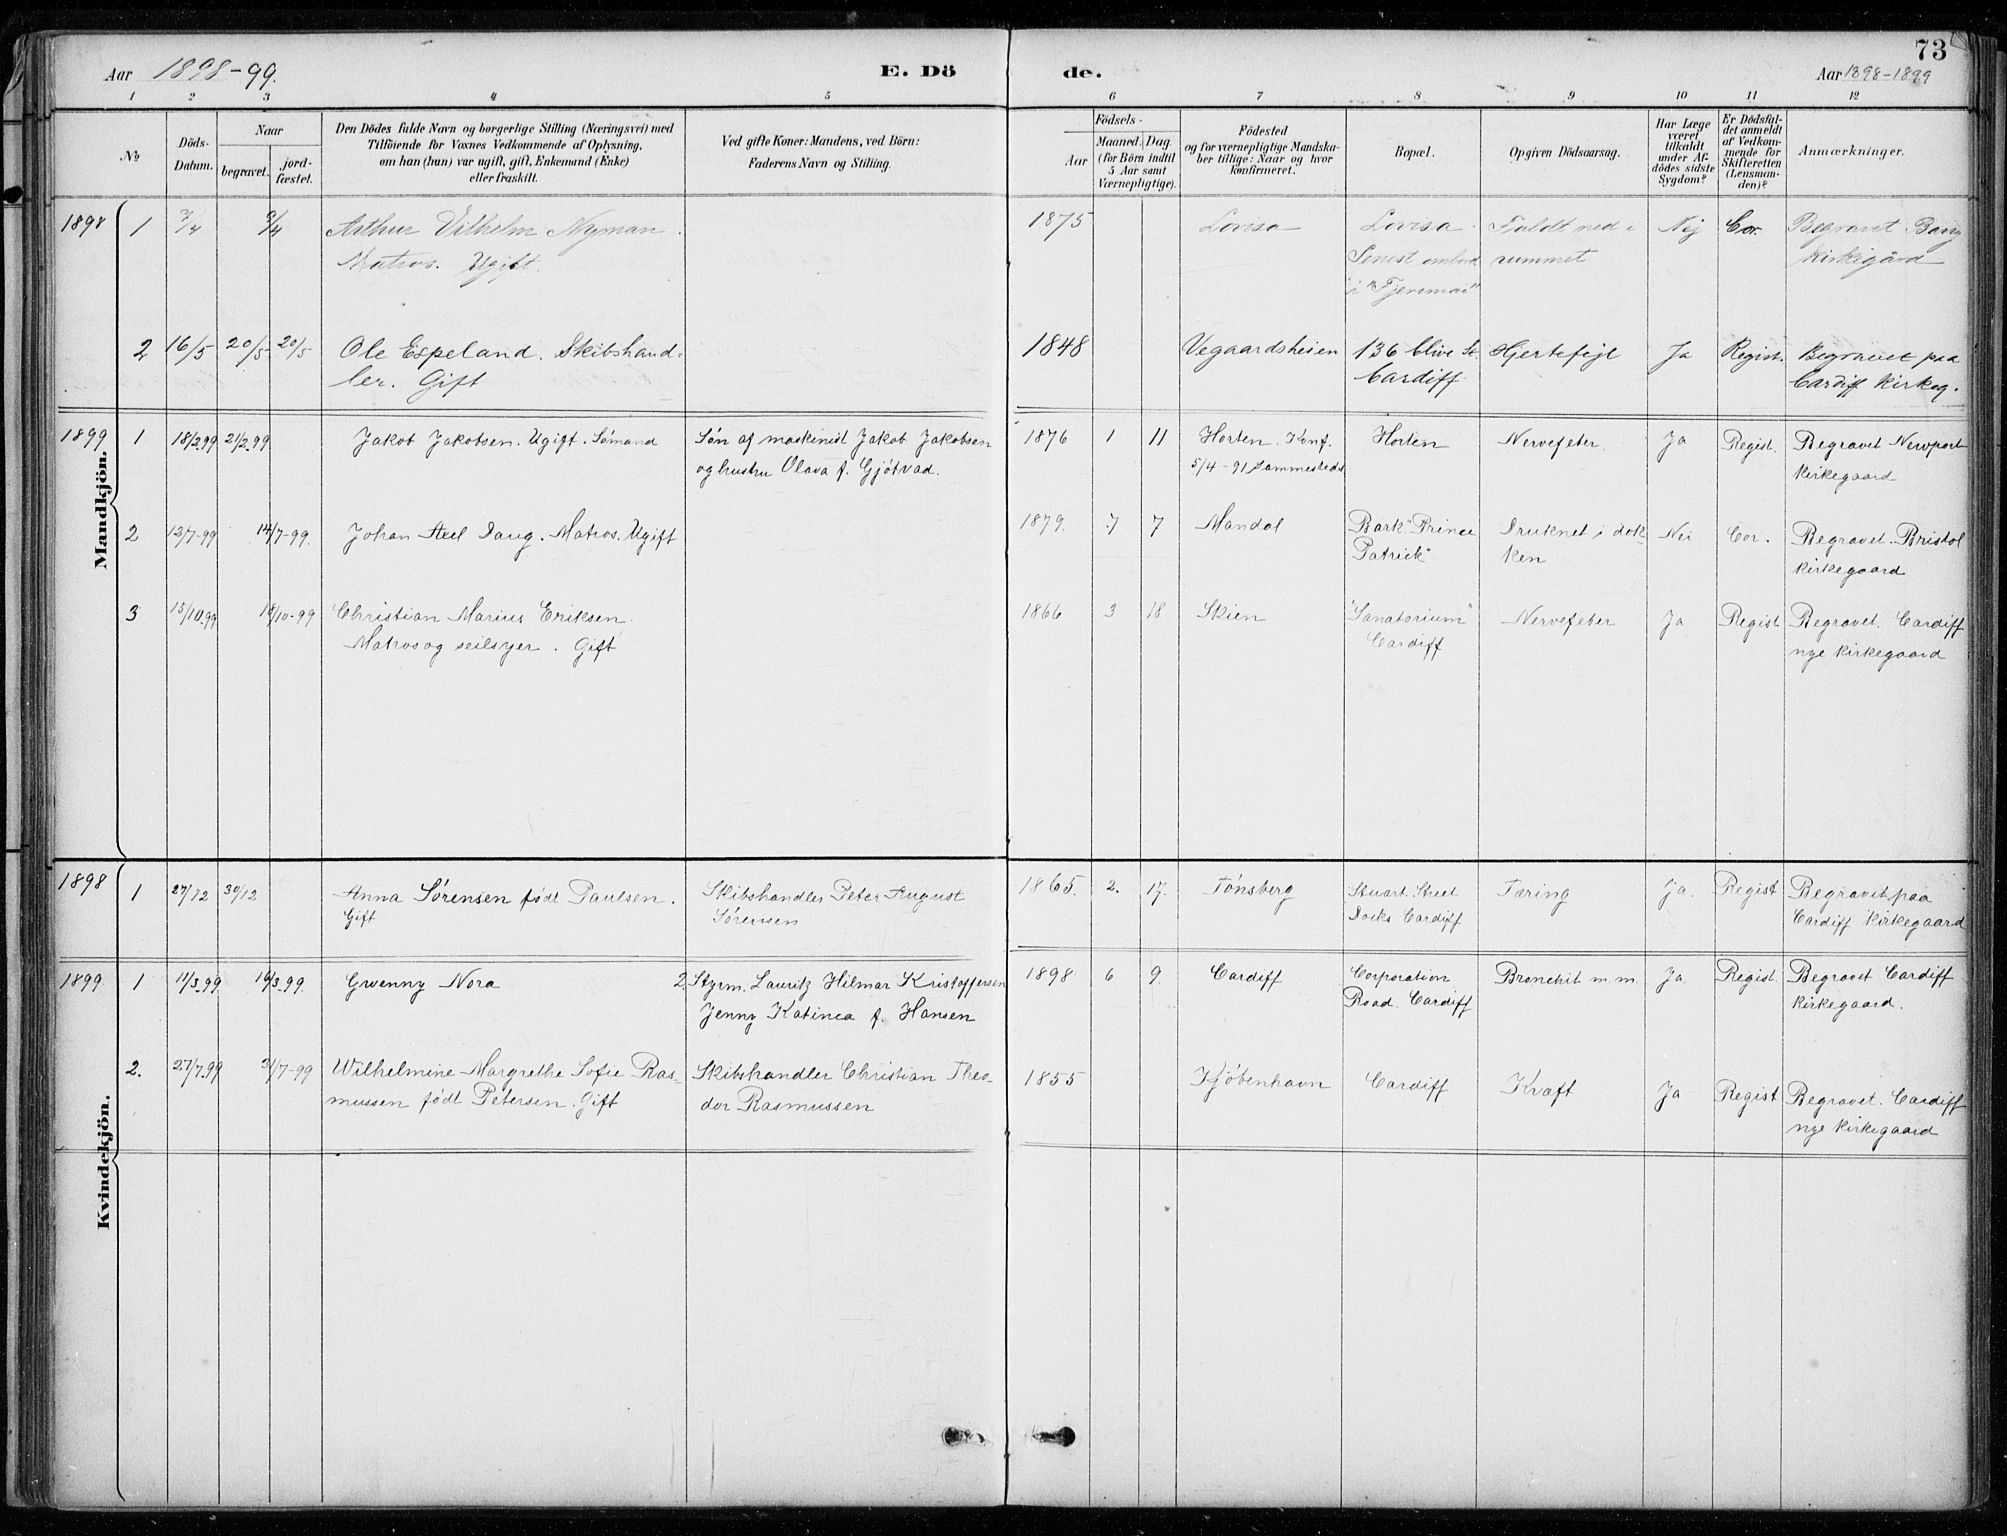 Aar 1898-99.
E. Dö
de.
73
Aar 1898-1899
1 2 3 4 5 6 7 8 9 10 11 12
№
Döds-Datum.
Naar
begravet.
jord-fæstet.
Den Dödes fulde Navn og borgerlige Stilling (Næringsvei) med
Tilföiende for Voxnes Vedkommende af Oplysning,
om han (hun) var ugift, gift, Enkemand (Enke)
eller fraskilt.
Ved gifte Koner: Mandens, ved Börn:
Faderens Navn og Stilling.
Födsels-
Aar
Maaned. Dag.
(for Börn indtil
5 Aar samt
Værnepligtige).
Födested
og for værnepligtige Mandska-
ber tillige: Naar og hvor
konfirmeret.
Bopæl.
Opgiven Dödsaarsag.
Har Læge
været
tilkaldt
under Af-
dödes sidste
Sygdom?
Er Dödsfal-
det anmeldt
af Vedkom-
mende for
Skifteretten
(Lensman-
den)?
Anmærkninger.
Mandkjön.
1898 1 /4 /4 Arthur Vilhelm Nyman.
Matros. Ugift.
1875 Lovisa Lovisa. Faldt ned i Nej Cor. Begravet
Senest ombord rummet Kirkigård
i
2 16/5 20/5 20/5 Ole Espeland. Skibshand-
ler. Gift
1848 Vegaardsheien 136 Clive St. Hjertefejl Ja Regist. Begravet paa
Cardiff Cardiff Kirkeg.
1899 1 18/2 99 21/2 99 Jakob Jakobsen. Ugift. Sömand Sön af maskinist Jakob Jakobsen
og hustru Olava f. Gjötvad.
1876 1 11 Horten. Konf. Horten Nervefeber. Ja Regist. Begravet Newport
5/4-91 Sammesteds Kirkegaard
2 12/7-99 14/7-99. Johan Axel Daug. Matros. Ugift
1879. 7 7 Mandal Bark "Prince Druknet i dok- Nei Cor. Begravet. Bristol
Patrick" ken Kirkegaard
3 15/10.99 18/10-99 Christian Marius Eriksen.
Matros og seilsyer. Gift
1866 3 18 Skien "Sanatorium" Nervefeber Ja Regist Begravet. Cardiff
Cardiff nye Kirkegaard
Kvindekjön.
1898 1 27/12 30/12 Anna Sörensen födt Paulsen. Skibshandler Peter August
Gift Sörensen
1865. 2. 17. Tönsberg Stuart Street Tæring Ja. Regist Begravet paa
Docks Cardiff Cardiff Kirkegaard
1899 1 11/3.99 16/3.99. Gwenny Nora 2 Styrm. Lauritz Hilmar Kristoffersen
Jenny Katinca f. Hansen
1898 6 9. Cardiff Corporation Bronchit m.m. Ja. Regist. Begravet Cardiff
Road. Cardiff Kirkegaard.
2. 27/7.99 31/7-99 Wilhelmine Margrethe Sofie Ras- Skibshandler Christian Theo-
mussen födt Petersen. Gift dor Rasmussen
1855 Kjöbenhavn Cardiff Kræft Ja Regist Begravet. Cardiff
nye Kirkegaard